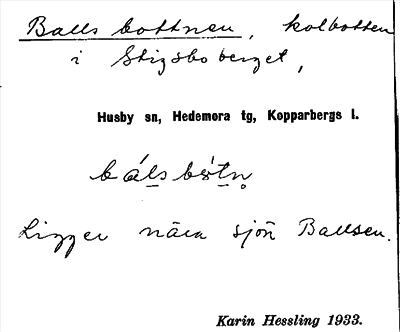 Ballsbottnen, kolbotten
i Stigsboberget,
Husby sn, Hedemora tg, Kopparbergs l.
Ligger nära sjön Ballsen.
Karin Hessling 1933.